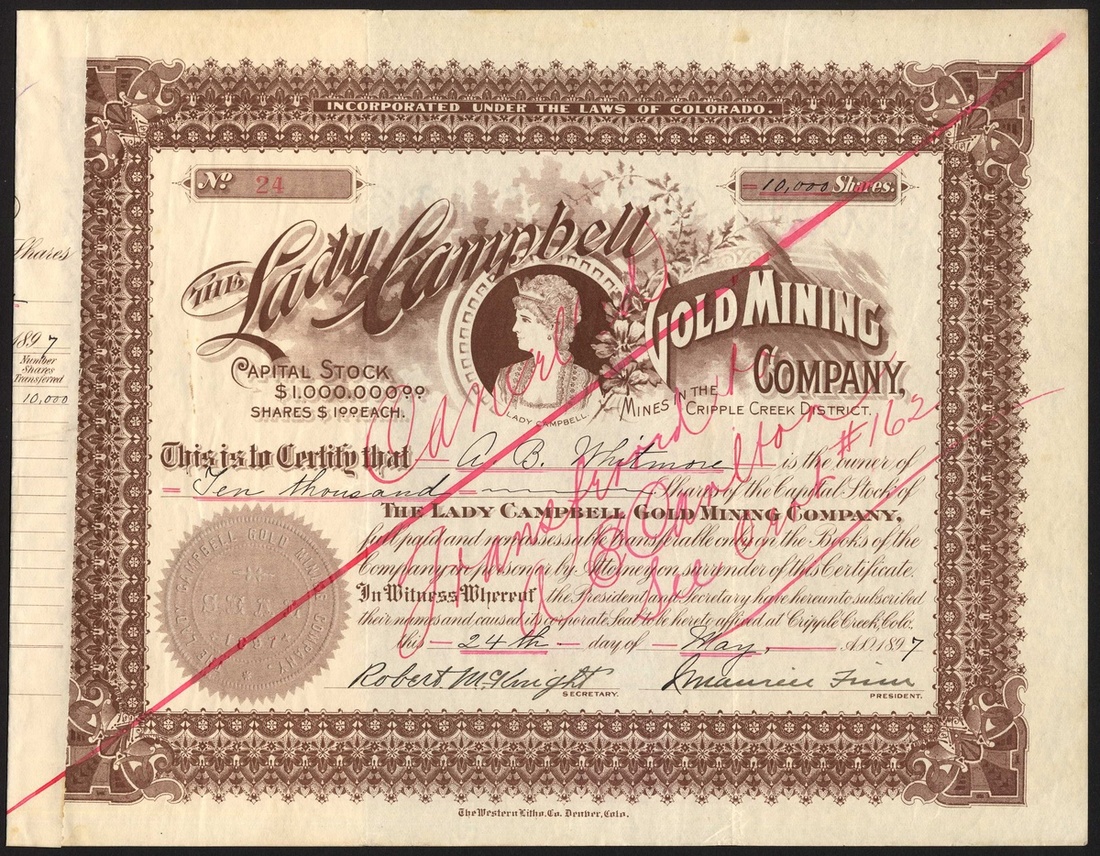 INCORPORATED UNDER THE LAWS OF COLORADO.
No. 24
10,000 Shares.
THE Lady Campbell
GOLD MINING
COMPANY.
CAPITAL STOCK
$1.000.000.00
SHARES $1.00 EACH.
LADY CAMPBELL
MINES IN THE
CRIPPLE CREEK DISTRICT.
This is to Certify that A. B. Whitmore is the owner of
Ten thousand Shares of the Capital Stock of
THE LADY CAMPBELL GOLD MINING COMPANY,
full paid and nonassessable transferable only on the Books of the
Company in person or by Attorney on surrender of this Certificate.
In Witness Whereof the President and Secretary have hereunto subscribed
their names and caused its corporate Seal to be hereto affixed at Cripple Creek, Colo.
this 24th day of May, A.D. 1897
Robert McKnight
SECRETARY.
PRESIDENT.
THE LADY CAMPBELL GOLD MINING COMPANY
SEAL
Cancelled
Transferred to
Carlton
See Cert #162
Shares
1897
Number
Shares
Transferred
10,000
The Western Litho. Co. Denver, Colo.